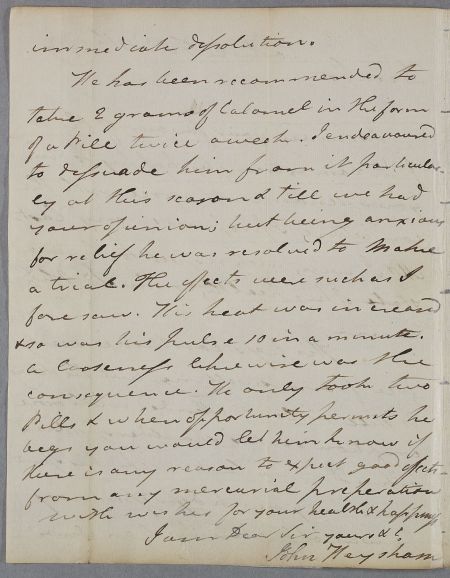 immediate dissolution.
He has been recommended to
take 2 grains of Calomel in the form
of a Pill twice a week. I endeavoured
to dissuade him from it particular-
ly at this season & till we had
your opinion; but being anxious
for relief he was resolved to make
a trial. The effects were such as I
fore saw. His heat was increased
& so was his pulse 10 in a minute.
a looseness likewise was the
consequence. He only took two
Pills & when opportunity permits he
begs you would let him know if
there is any reason to expect good effects
from any mercurial preperation
with wishes for your health & happiness
I am Dear Sir yours &c.
John Heysham